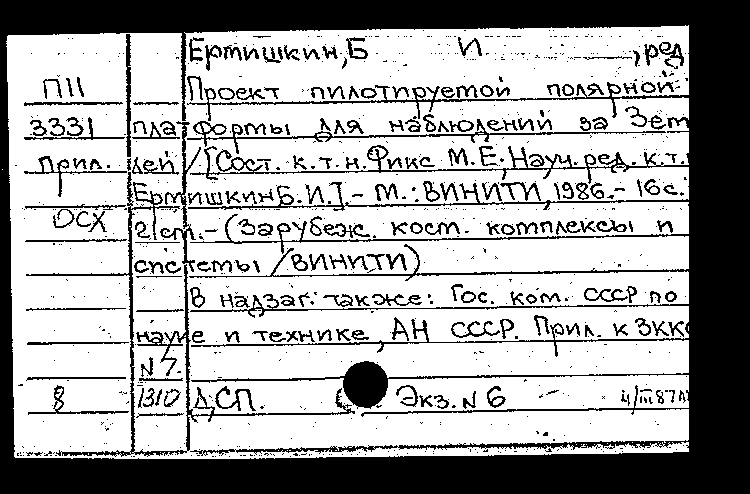 Ертишкин, Б И , ред
П11 Проект пилотируемой полярной
3331 платформы для наблюдений за Зем
прил. лей / [Сост. к.т.н. Фикс М.Е.; Науч. ред. к.т.
Ертишкин Б.И.] - М.: ВИНИТИ, 1986. - 16 с.
ОСХ 21 см. - (Зарубеж. косм. комплексы и
системы / ВИНИТИ)
В надзаг. также: Гос. ком. СССР по
науке и технике, АН СССР. Прил. к ЗКК
N 7.
8 1310 ДСП. Экз. N 6 4/III 87